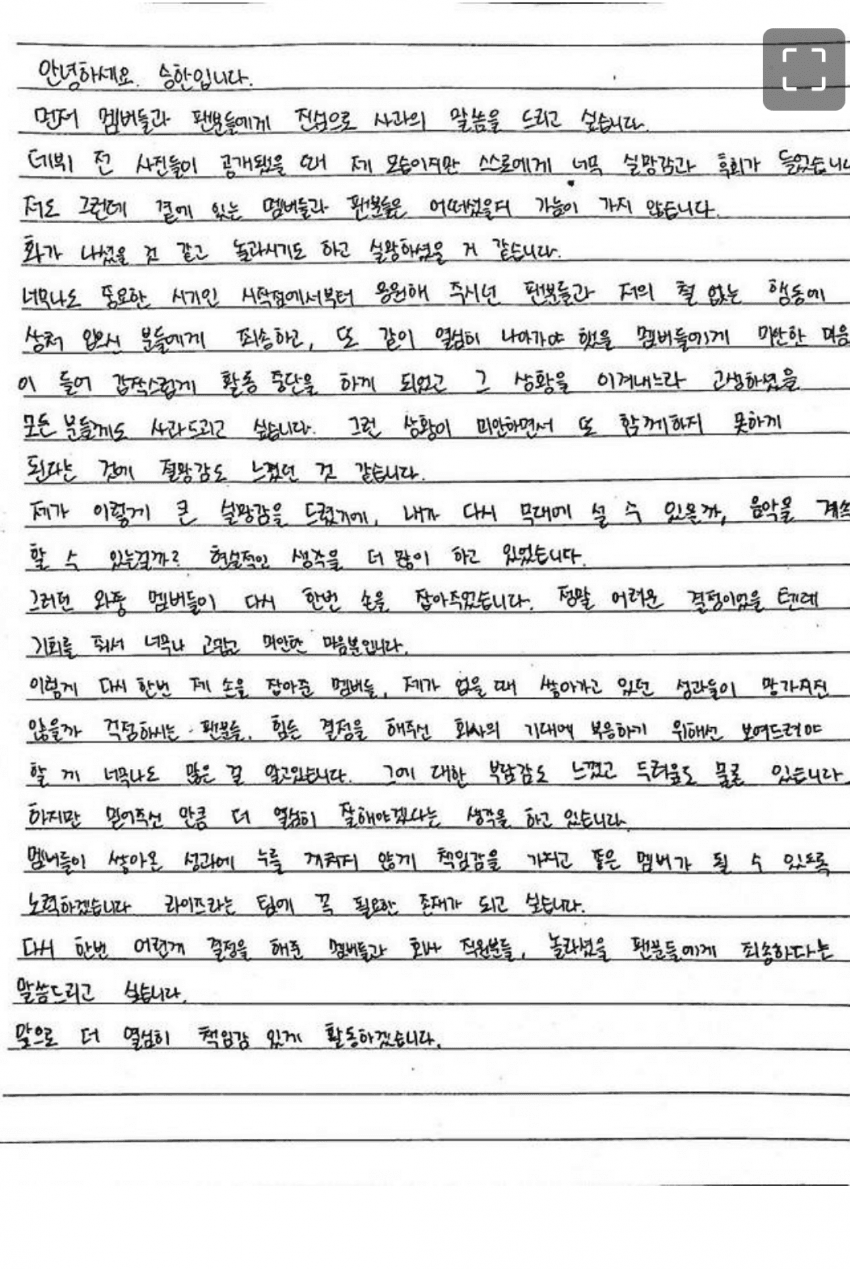 안녕하세요. 승한입니다.
먼저 멤버들과 팬분들에게 진심으로 사과의 말씀을 드리고 싶습니다.
데뷔 전 사진들이 공개됐을 때 제 모습이지만 스스로에게 너무 실망감과 후회가 들었습니다
저도 그런데 곁에 있는 멤버들과 팬분들은 어떠셨을지 가늠이 가지 않습니다.
화가 나셨을 것 같고 놀라시기도 하고 실망하셨을 거 같습니다.
너무나도 중요한 시기인 시작점에서부터 응원해 주시던 팬분들과 저의 철 없는 행동에
상처 입으신 분들에게 죄송하고, 또 같이 열심히 나아가야 했을 멤버들에게 미안한 마음
이 들어 갑작스럽게 활동 중단을 하게 되었고 그 상황을 이겨내느라 고생하셨을
모든 분들께도 사과드리고 싶습니다. 그런 상황이 미안하면서 또 함께하지 못하게
된다는 것에 절망감도 느꼈던 것 같습니다.
제가 이렇게 큰 실망감을 드렸기에, 내가 다시 무대에 설 수 있을까, 음악을 계속
할 수 있는걸까? 현실적인 생각을 더 많이 하고 있었습니다.
그러던 와중 멤버들이 다시 한번 손을 잡아주었습니다. 정말 어려운 결정이었을 텐데
기회를 줘서 너무나 고맙고 미안한 마음뿐입니다.
이렇게 다시 한번 제 손을 잡아준 멤버들, 제가 없을 때 쌓아가고 있던 성과들이 망가지진
않을까 걱정하시는 팬분들, 힘든 결정을 해주신 회사의 기대에 부응하기 위해선 보여드려야
할 게 너무나도 많은 걸 알고있습니다. 그에 대한 부담감도 느꼈고 두려움도 물론 있습니다.
하지만 믿어주신 만큼 더 열심히 잘해야겠다는 생각을 하고 있습니다.
멤버들이 쌓아온 성과에 누를 끼치지 않게 책임감을 가지고 좋은 멤버가 될 수 있도록
노력하겠습니다 라이즈라는 팀에 꼭 필요한 존재가 되고 싶습니다.
다시 한번 어렵게 결정을 해준 멤버들과 회사 직원분들, 놀라셨을 팬분들에게 죄송하다는
말씀드리고 싶습니다.
앞으로 더 열심히 책임감 있게 활동하겠습니다.